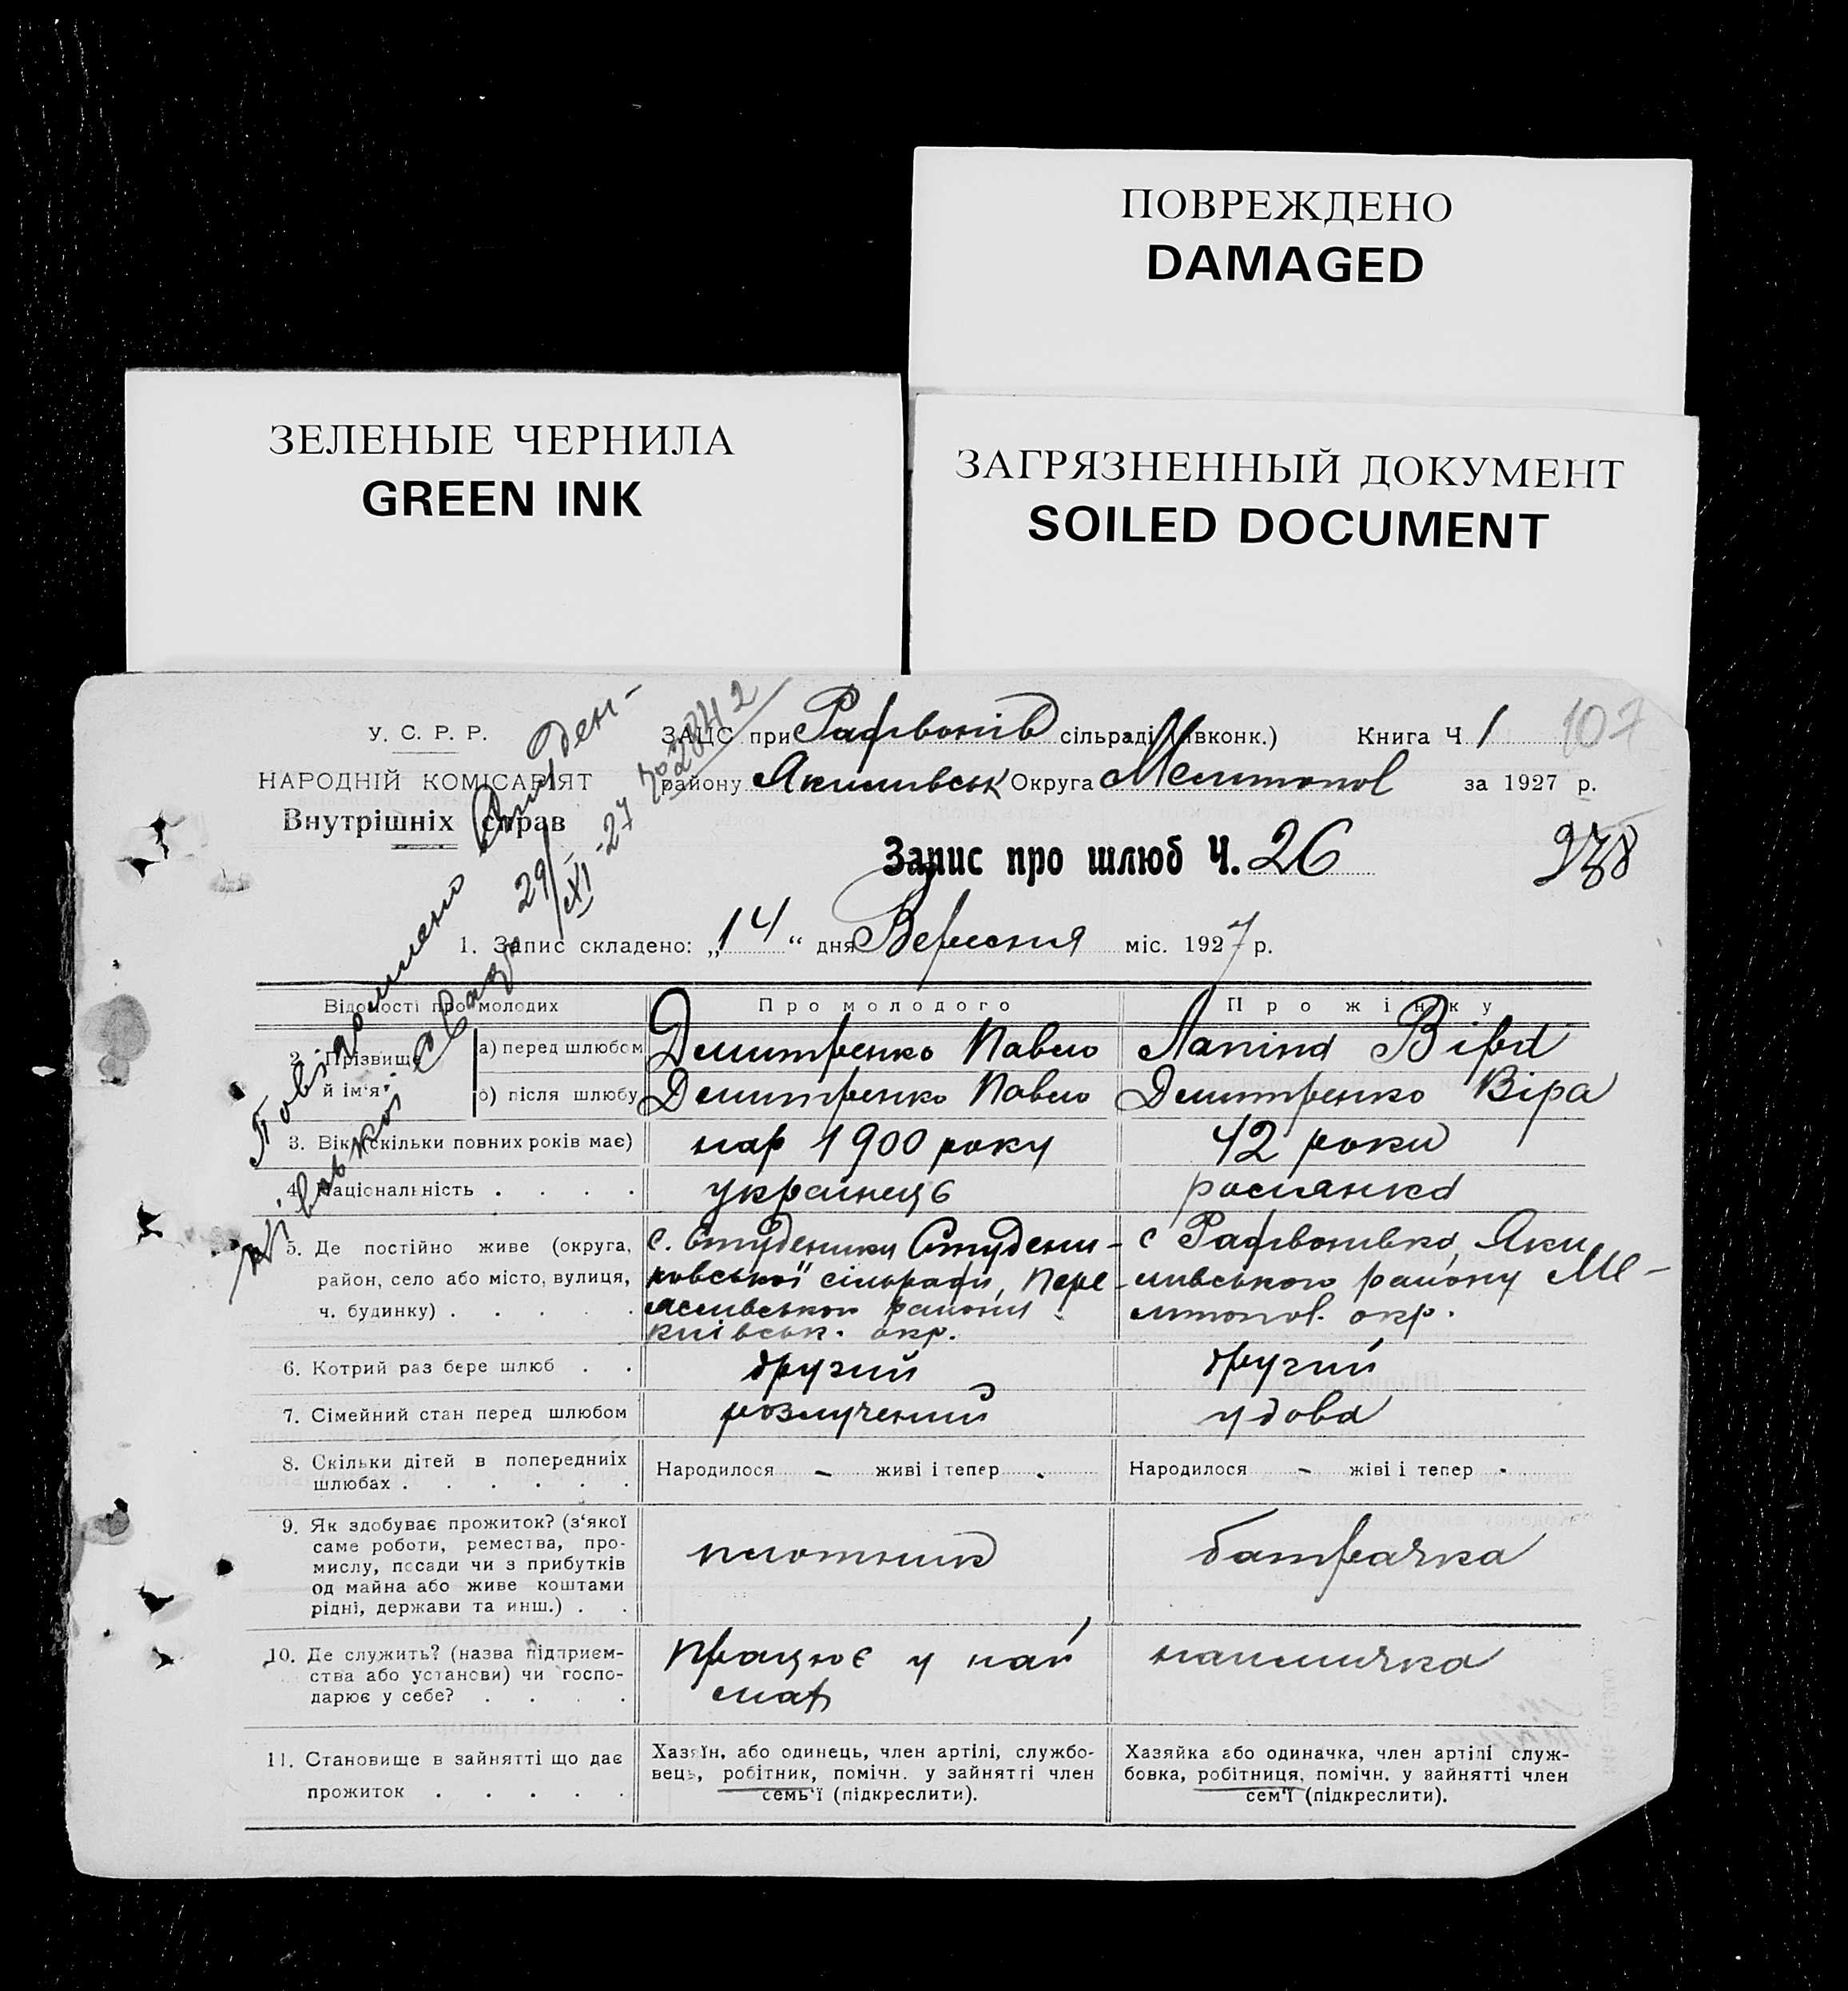 ПОВРЕЖДЕНО
DAMAGED
ЗЕЛЕНЫЕ ЧЕРНИЛА
GREEN INK
ЗАГРЯЗНЕННЫЙ ДОКУМЕНТ
SOILED DOCUMENT
У. С. Р. Р.
НАРОДНІЙ КОМІСАРІЯТ
Внутрішніх справ
ЗАЦС при сільраді (Авконк.) Книга Ч 1 107
району Якимівськ Округа Мелитопол за 1927 р.
Запис про шлюб Ч. 26
978
1. Запис складено: „14“ дня Вересня міс. 1927 р.
Повідомлено
29/XI-27 № 2842
Відомості про молодих
Про молодого
Про жінку
2. Прізвище й ім'я
а) перед шлюбом Дмитренко Павло Лапіна Віра
б) після шлюбу Дмитренко Павло Дмитренко Віра
3. Вік (скільки повних років має) нар 1900 року 42 роки
4. Національність . . . . українець росіянка
5. Де постійно живе (округа, район, село або місто, вулиця, ч. будинку) . . . . .
с. Студеники Студени-
ковської сільради, Пере-
яславського району
київськ. окр.
Яки
мивського району Ме-
литопол. окр.
6. Котрий раз бере шлюб . . другий другий
7. Сімейний стан перед шлюбом розлучений удова
8. Скільки дітей в попередніх шлюбах . . . . . . Народилося – живі і тепер - Народилося – жіві і тепер -
9. Як здобуває прожиток? (з'якої
саме роботи, ремества, про-
мислу, посади чи з прибутків
од майна або живе коштами
рідні, держави та инш.) . .
плотник
батрачка
10. Де служить? (назва підприєм-
ства або установи) чи госпо-
дарює у себе? . . . .
працює у най
мах
наймичка
11. Становище в зайнятті що дає
прожиток . . . . .
Хазяїн, або одинець, член артілі, службо-
вець, робітник, помічн. у зайнятті член
семь'ї (підкреслити).
Хазяйка або одиначка, член артілі служ-
бовка, робітниця, помічн. у зайнятті член
сем'ї (підкреслити).